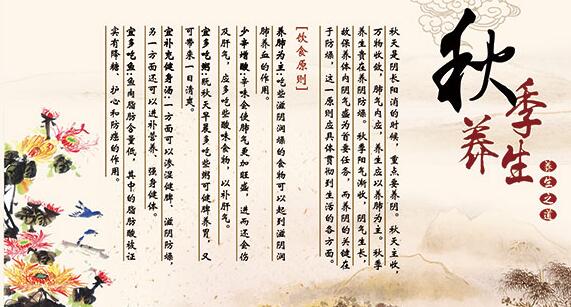 秋季养生
养生之道
秋天是阴长阳消的时候，重点要养阴。秋天主收，
万物收敛，肺气内应，养生应以养肺为主。秋季
养生贵在养阴防燥。秋季阳气渐收，阴气生长，
故保养体内阴气成为首要任务，而养阴的关键在
于防燥，这一原则应具体贯彻到生活的各方面。
[饮食原则]
养肺为主：吃些滋阴润燥的食物可以起到滋阴润
肺养血的作用。
少辛增酸：辛味会使肺气更加旺盛，进而还会伤
及肝气，应多吃些酸味食物，以补肝气。
宜多吃粥：既秋天早晨多吃些粥可健脾养胃，又
可带来一日清爽。
宜补充健身汤：一方面可以渗湿健脾、滋阴防燥，
另一方面还可以进补营养、强身健体。
宜多吃鱼：鱼肉脂肪含量低，其中的脂肪酸被证
实有降糖、护心和防癌的作用。